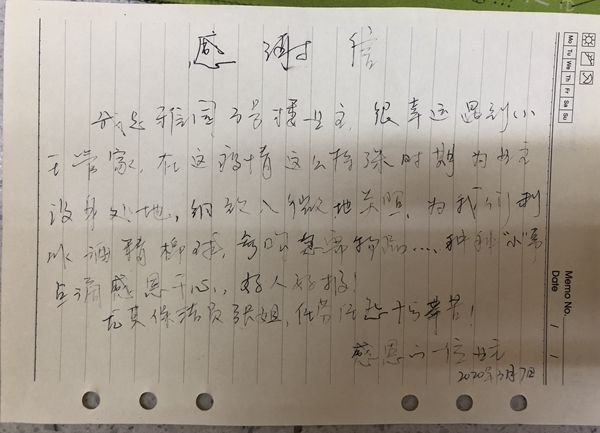 感谢信
我是雅园3号楼业主，很幸运遇到小
王管家，在这疫情这么特殊时期为业主
设身处地，细致入微地关照，为我们剃
水油精柳，每日急需物品……种种“小”事
点滴感恩于心，好人好报！
尤其保洁员张姐，任劳任怨十分辛苦！
感恩的一位业主
2020年3月7日
Mo Tu We Th Fr Sa Su
Memo No.
Date / /